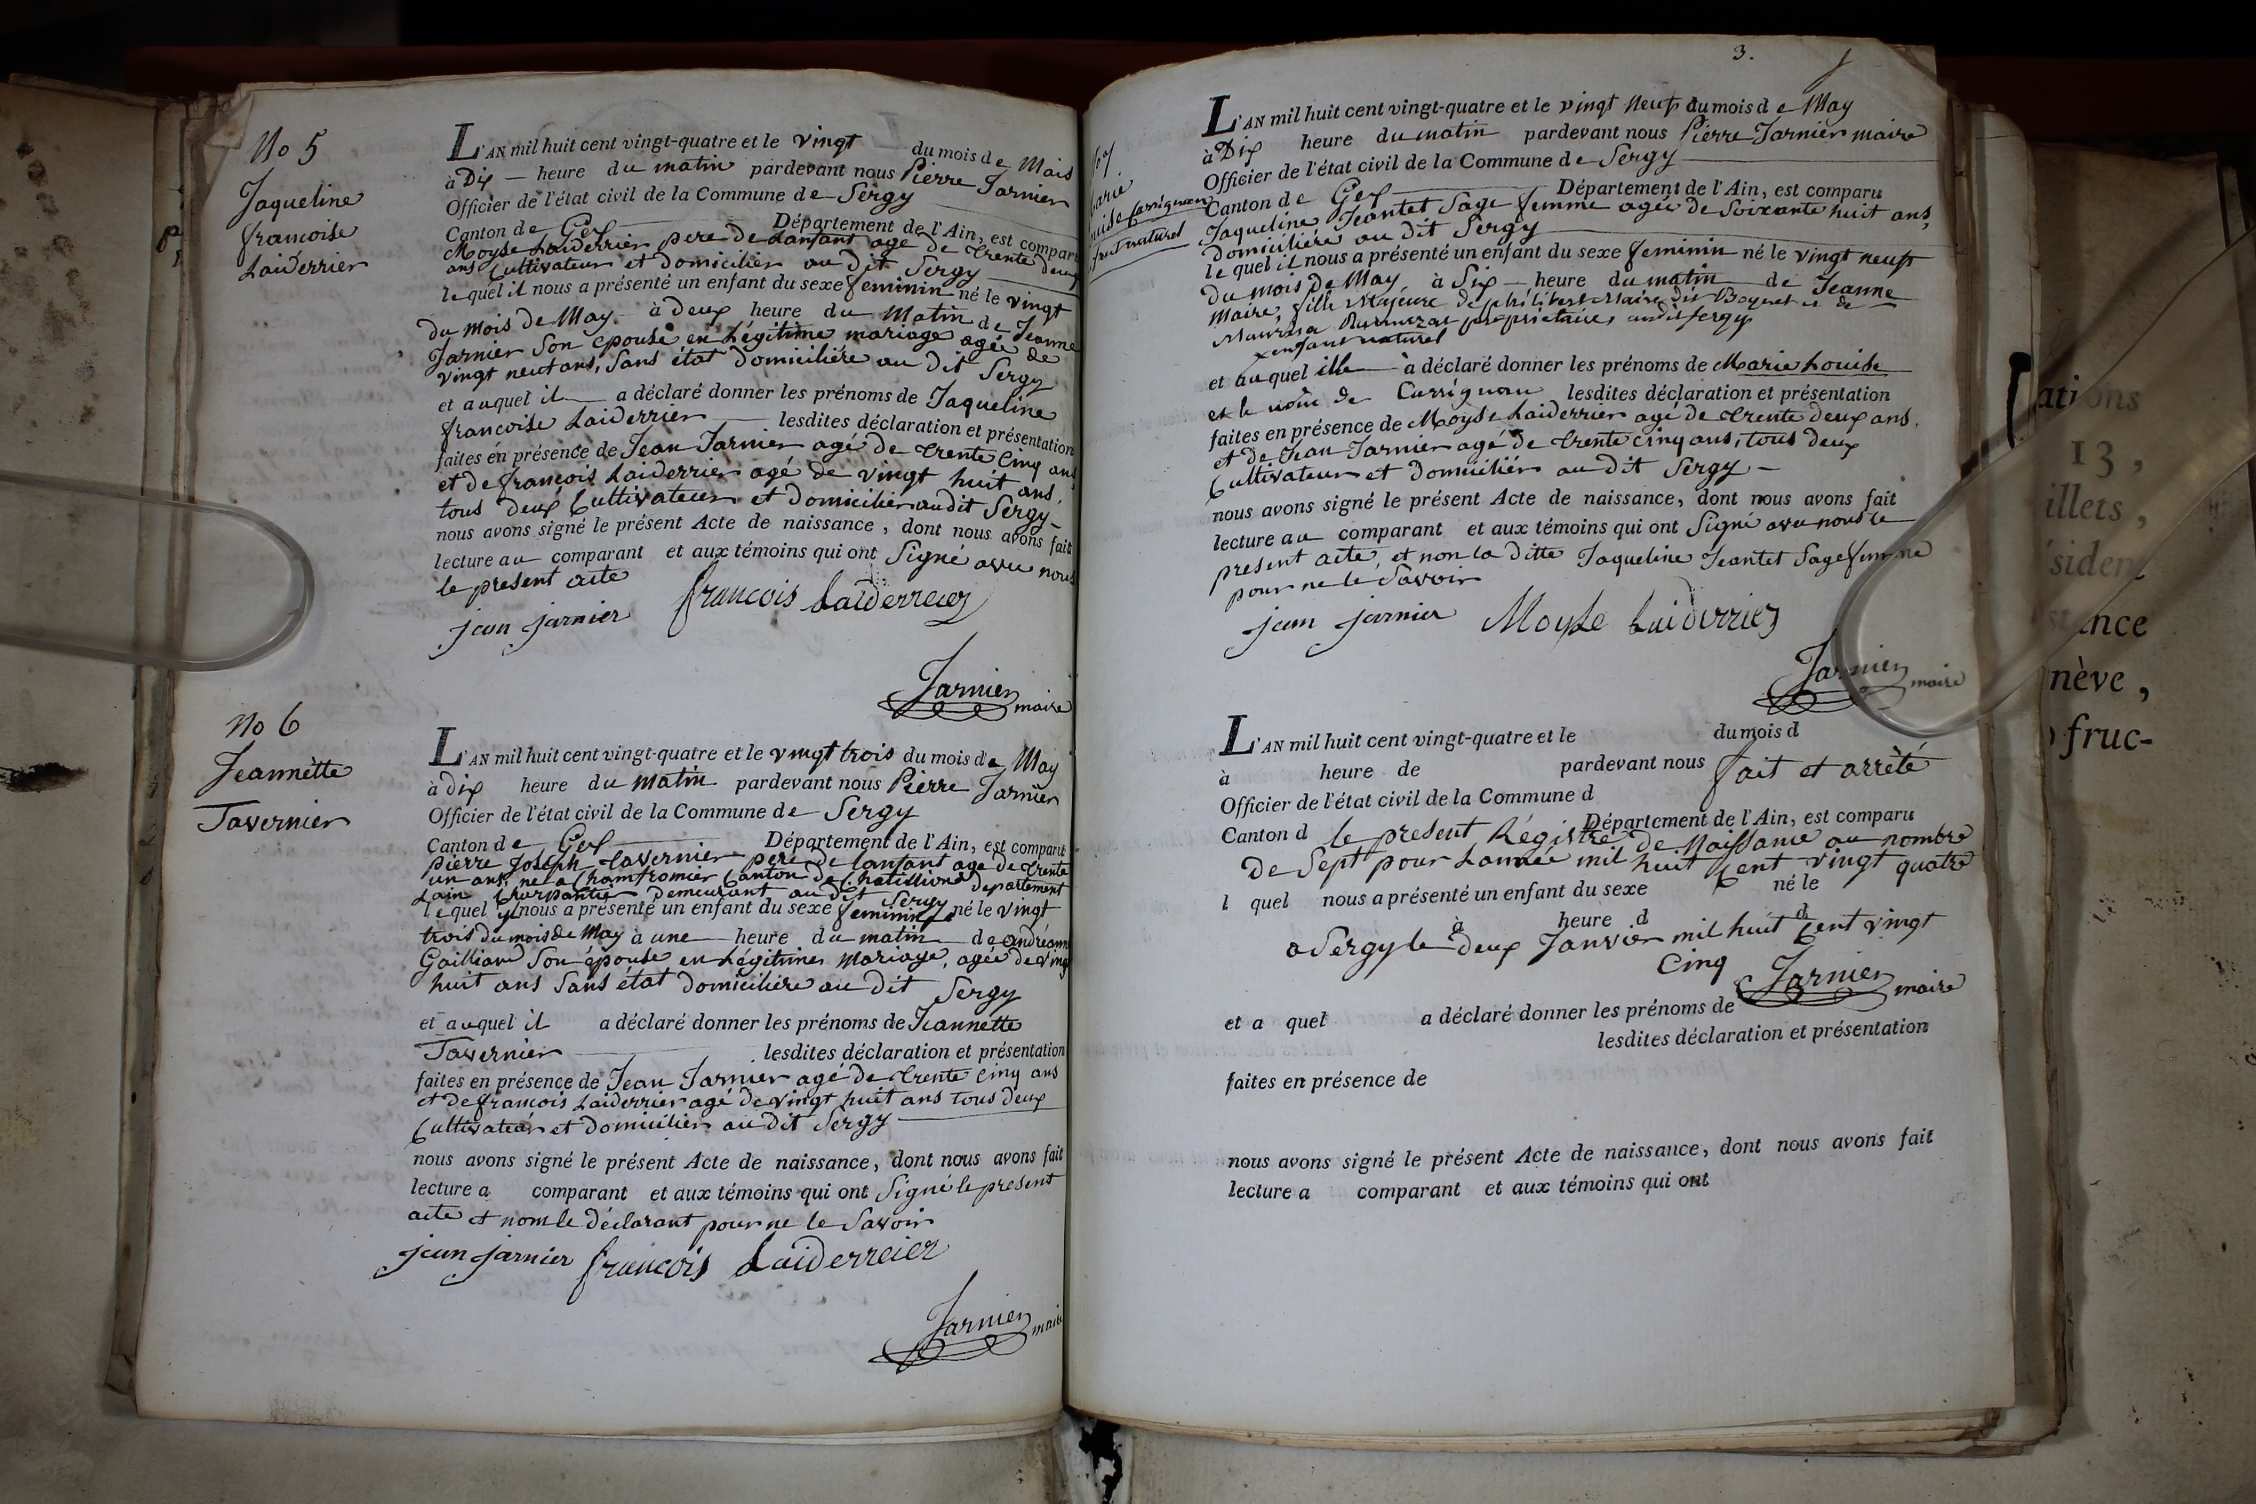 No 5
Jaqueline
francoise
Laiderrier
L'AN mil huit cent vingt-quatre et le vingt du mois de Mais
à Dix — heure du matin pardevant nous Pierre Jarnier
Officier de l'état civil de la Commune de Sergy
Canton de Gex Département de l'Ain, est comparu
Moyse Laiderrier pere de Lanfant agé de trente deux
ans Cultivateur et domicilier au dit Sergy
lequel il nous a présenté un enfant du sexe feminin né le vingt
du mois de May à deux heure du Matin de Jeanne
Jarnier Son epouse en Légitime mariage agée de
vingt neuf ans, Sans état domiciliére au dit Sergy
et auquel il a déclaré donner les prénoms de Jaqueline
francoise Laiderrier lesdites déclaration et présentation
faites en présence de Jean Jarnier agé de trente Cinq ans
et de francois Laiderrier agé de vingt huit ans,
tous deux Cultivateur et domicilier au dit Sergy
nous avons signé le présent Acte de naissance, dont nous avons fait
lecture au comparant et aux témoins qui ont Signé avec nous
le present acte
jean jarnier francois Laiderreier
Jarnier maire
No 6
Jeannette
Tavernier
L'AN mil huit cent vingt-quatre et le vingt trois du mois de May
à dix heure du matin pardevant nous Pierre Jarnier
Officier de l'état civil de la Commune de Sergy
Canton de Gex Département de l'Ain, est comparu
pierre Joseph tavernier pere de Lanfant agé de trente
un ans, né a Chamfromier Canton de Chatillion departement
Lain Charpantier demeurant au dit Sergy
lequel il nous a présenté un enfant du sexe feminin né le vingt
trois du mois de May à une heure du matin de andréanne
Gailliard Son épouse en Légitime Mariage, agée de vingt
huit ans Sans état domiciliére au dit Sergy
et auquel il a déclaré donner les prénoms de Jeannette
Tavernier lesdites déclaration et présentation
faites en présence de Jean Jarnier agé de trente Cinq ans
et de francois Laiderrier agé de vingt huit ans tous deux
Cultivateur et domicilier au dit Sergy
nous avons signé le présent Acte de naissance, dont nous avons fait
lecture a comparant et aux témoins qui ont Signé le present
acte et nom le déclarant pour ne le Savoir
jean jarnier francois Laiderreier
Jarnier maire
3.
fruit naturel
L'AN mil huit cent vingt-quatre et le vingt Neuf du mois de May
à Dix heure du matin pardevant nous Pierre Jarnier maire
Officier de l'état civil de la Commune de Sergy
Canton de Gex Département de l'Ain, est comparu
Jaqueline Jeantet Sage femme agée de Soixante huit ans,
domiciliére au dit Sergy
lequel il nous a présenté un enfant du sexe feminin né le vingt neuf
du mois de May à Six heure du matin de Jeanne
Maire, fille Majeure de philibert Maire dit et de
propriétaires audit Sergy
x enfant naturel
et auquel ille à déclaré donner les prénoms de Marie Louise
et le nom de Carrignan lesdites déclaration et présentation
faites en présence de Moyse Laiderrier agé de trente deux ans,
et de Jean Jarnier agé de trente Cinq ans, tous deux
Cultivateur et domicilier au dit Sergy
nous avons signé le présent Acte de naissance, dont nous avons fait
lecture au comparant et aux témoins qui ont Signé avec nous le
present acte, et non la ditte Jaqueline Jeantet Sage femme
pour ne le Savoir
jean jarnier Moyse Laiderrier
Jarnier maire
L'AN mil huit cent vingt-quatre et le du mois d
à heure de pardevant nous fait et arrèté
Officier de l'état civil de la Commune d
Canton d Département de l'Ain, est comparu
le present Régistre de Naissance au nombre
de Sept pour Lannée mil huit Cent vingt quatre
l quel nous a présenté un enfant du sexe né le
à heure d d
a Sergy le deux Janvier mil huit Cent vingt
Cinq Jarnier maire
et a quel a déclaré donner les prénoms de
lesdites déclaration et présentation
faites en présence de
nous avons signé le présent Acte de naissance, dont nous avons fait
lecture a comparant et aux témoins qui ont
13,
illets,
nève,
fruc-